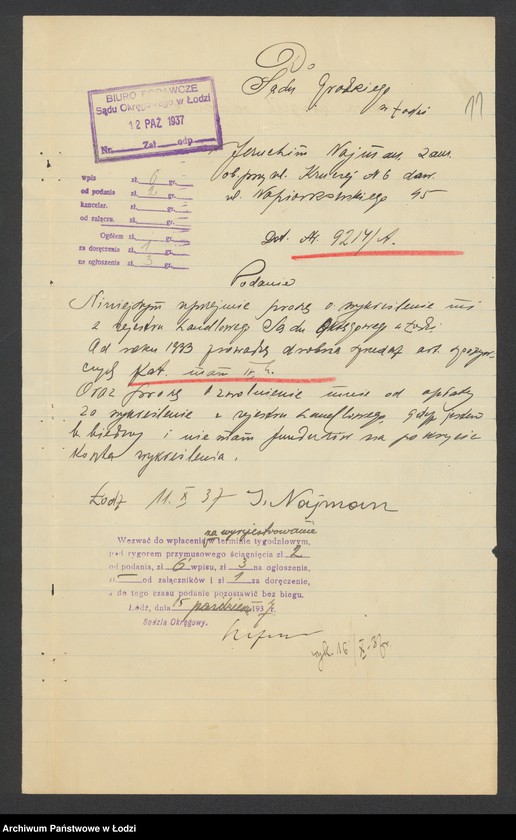 Do
Sądu Grodzkiego
w Łodzi
11
BIURO PODAWCZE
Sądu Okręgowego w Łodzi
12 PAŹ 1937
Nr. Zał odp.
Jeruchim Najman zam.
ob. przy ul. Kruczej № 6 daw.
ul. Napiórkowskiego 45
wpis zł. 6 gr.
od podania zł. 2 gr.
kancelar. zł. gr.
od załącz. zł. gr.
Ogółem zł. gr.
za doręczenie zł. 1 gr.
na ogłoszenie zł. 3 gr.
Dot. Nr. 9214/A.
Podanie
Niniejszym uprzejmie proszę o wykreślenie mi
z rejestru handlowego Sądu Okręgowego w Łodzi
Od roku 1933 prowadzę drobną sprzedaż art. spożyw-
czych Kat.
Oraz proszę o zwolnienie mnie od opłaty
za wykreślenie z rejestru handlowego, gdyż jestem
b. biedny i nie mam funduszów na pokrycie
koszta wykreślenia.
Łodź 11. X 37 J. Najman
za wyrejestrowanie
Wezwać do wpłacenia w terminie tygodniowym,
pod rygorem przymusowego ściągnięcia zł. 2
od podania, zł. 6 wpisu, zł. 3 na ogłoszenie,
zł. — od załączników i zł. 1 za doręczenie,
a do tego czasu podanie pozostawić bez biegu.
Łódź, dnia 15 paździer 1937 r.
Sędzia Okręgowy.
wyk. 16/X-37r
Archiwum Państwowe w Łodzi